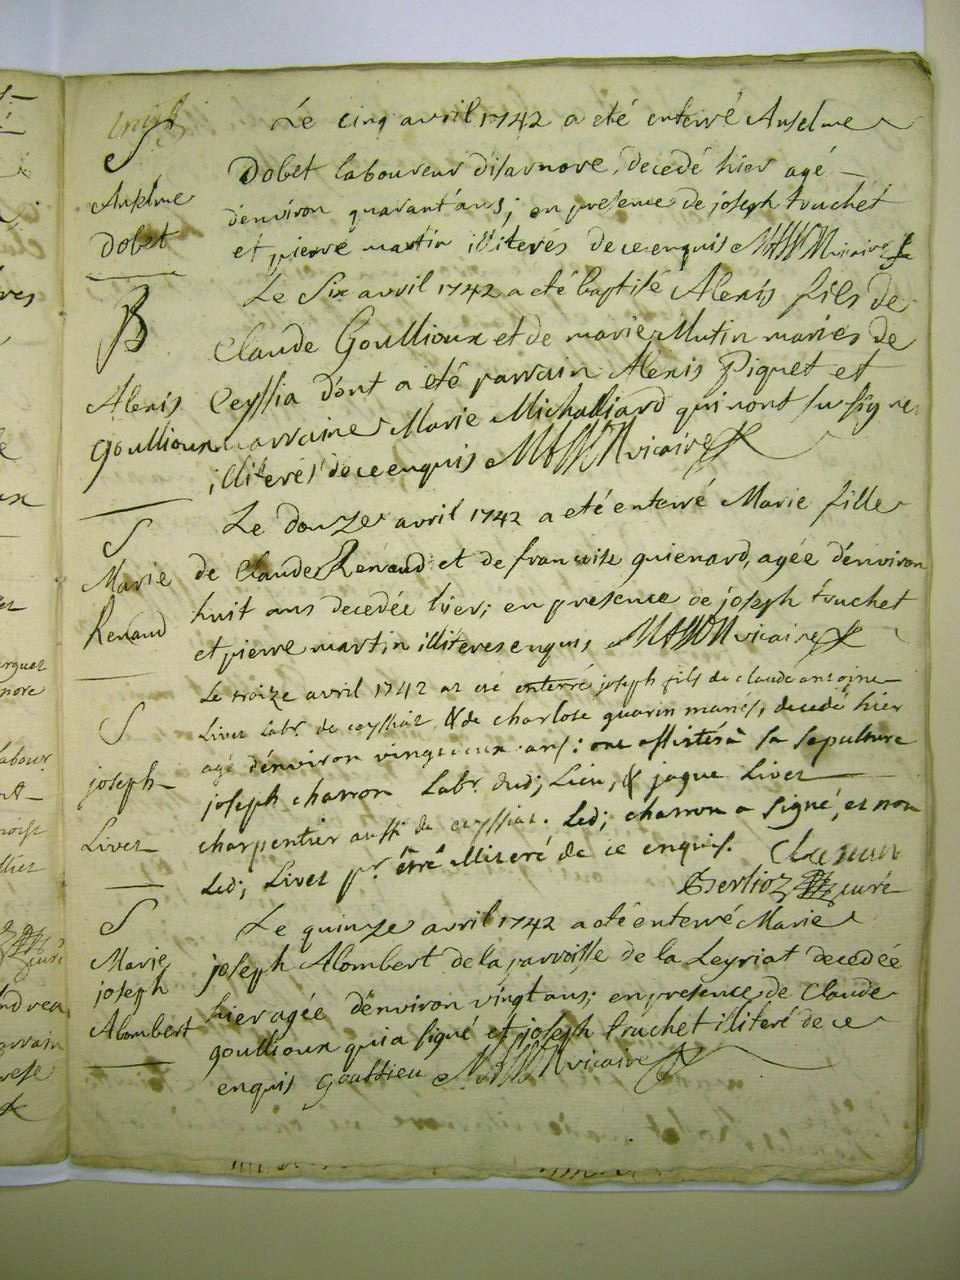 S
Anselme
Dobet
Le cinq avril 1742 a eté enterré Anselme
Dobet laboureur disarnore, decedé hier agé
d'environ quarant'ans; en presence de joseph truchet
et pierre martin illiterés de ce enquis MASSON vicaire
B
Alexis
Goullioux
Le Six avril 1742 a eté baptisé Alexis fils de
Claude Goullioux et de marie Mutin mariés de
Ceyssia dont a eté parrain Alexis Piquet et
marraine Marie Michalliard qui n'ont su signer
illiterés de ce enquis MASSON vicaire
S
Marie
Renaud
Le douze avril 1742 a eté enterré Marie fille
de Claude Renaud et de françoise guienard, agée d'environ
huit ans decedée hier; en presence de joseph truchet
et pierre martin illiteres enquis MASSON vicaire
S
joseph
Livet
Le treize avril 1742 at eté enterré joseph fils de claude antoine
Livet Labr. de ceyssiat & de charlote guarin mariés, decedé hier
agé d'environ vingt deux ans: ont assistés à sa sepulture
joseph charron Labr. dud; Lieu, & jaque Livet
charpentier aussi de ceyssiat. Led; charron a signé, et non
Led; Livet pr. être illiteré de ce enquis.
Berlioz curé
S
Marie
joseph
Alombert
Le quinze avril 1742 a eté enterré Marie
joseph Alombert de la parroisse de la Leyriat decedée
hier agée d'environ vingt ans; en presence de Claude
goullioux qui a signé et joseph truchet illiteré de ce
enquis MASSON vicaire